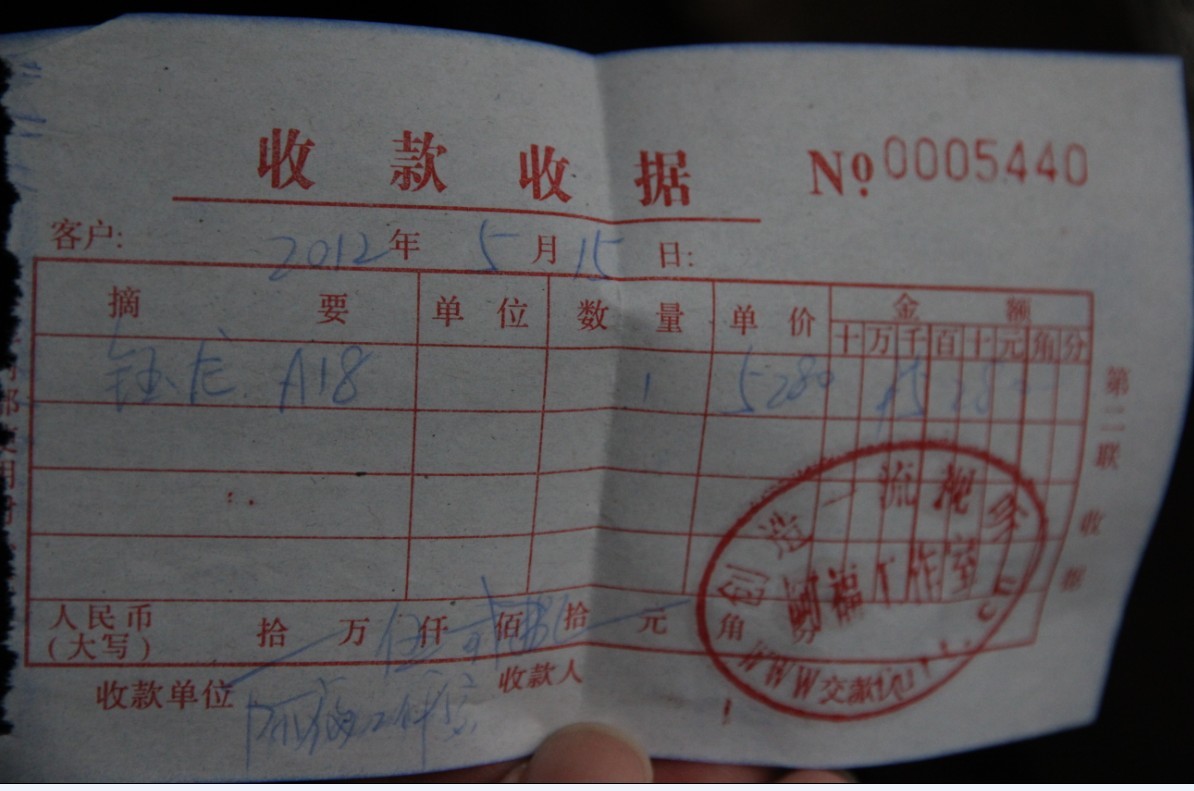 收款收据 №0005440
客户: 2012年 5月15日:
摘要 单位 数量 单价 金额
十万千百十元角分
钰龙 A18 1 5280 ¥5280
人民币(大写) 拾 万 伍仟 贰佰 捌拾 元 角
收款单位 阿福工作室 收款人 交款
第二联 收据
创造一流视
阿福工作室
WWW